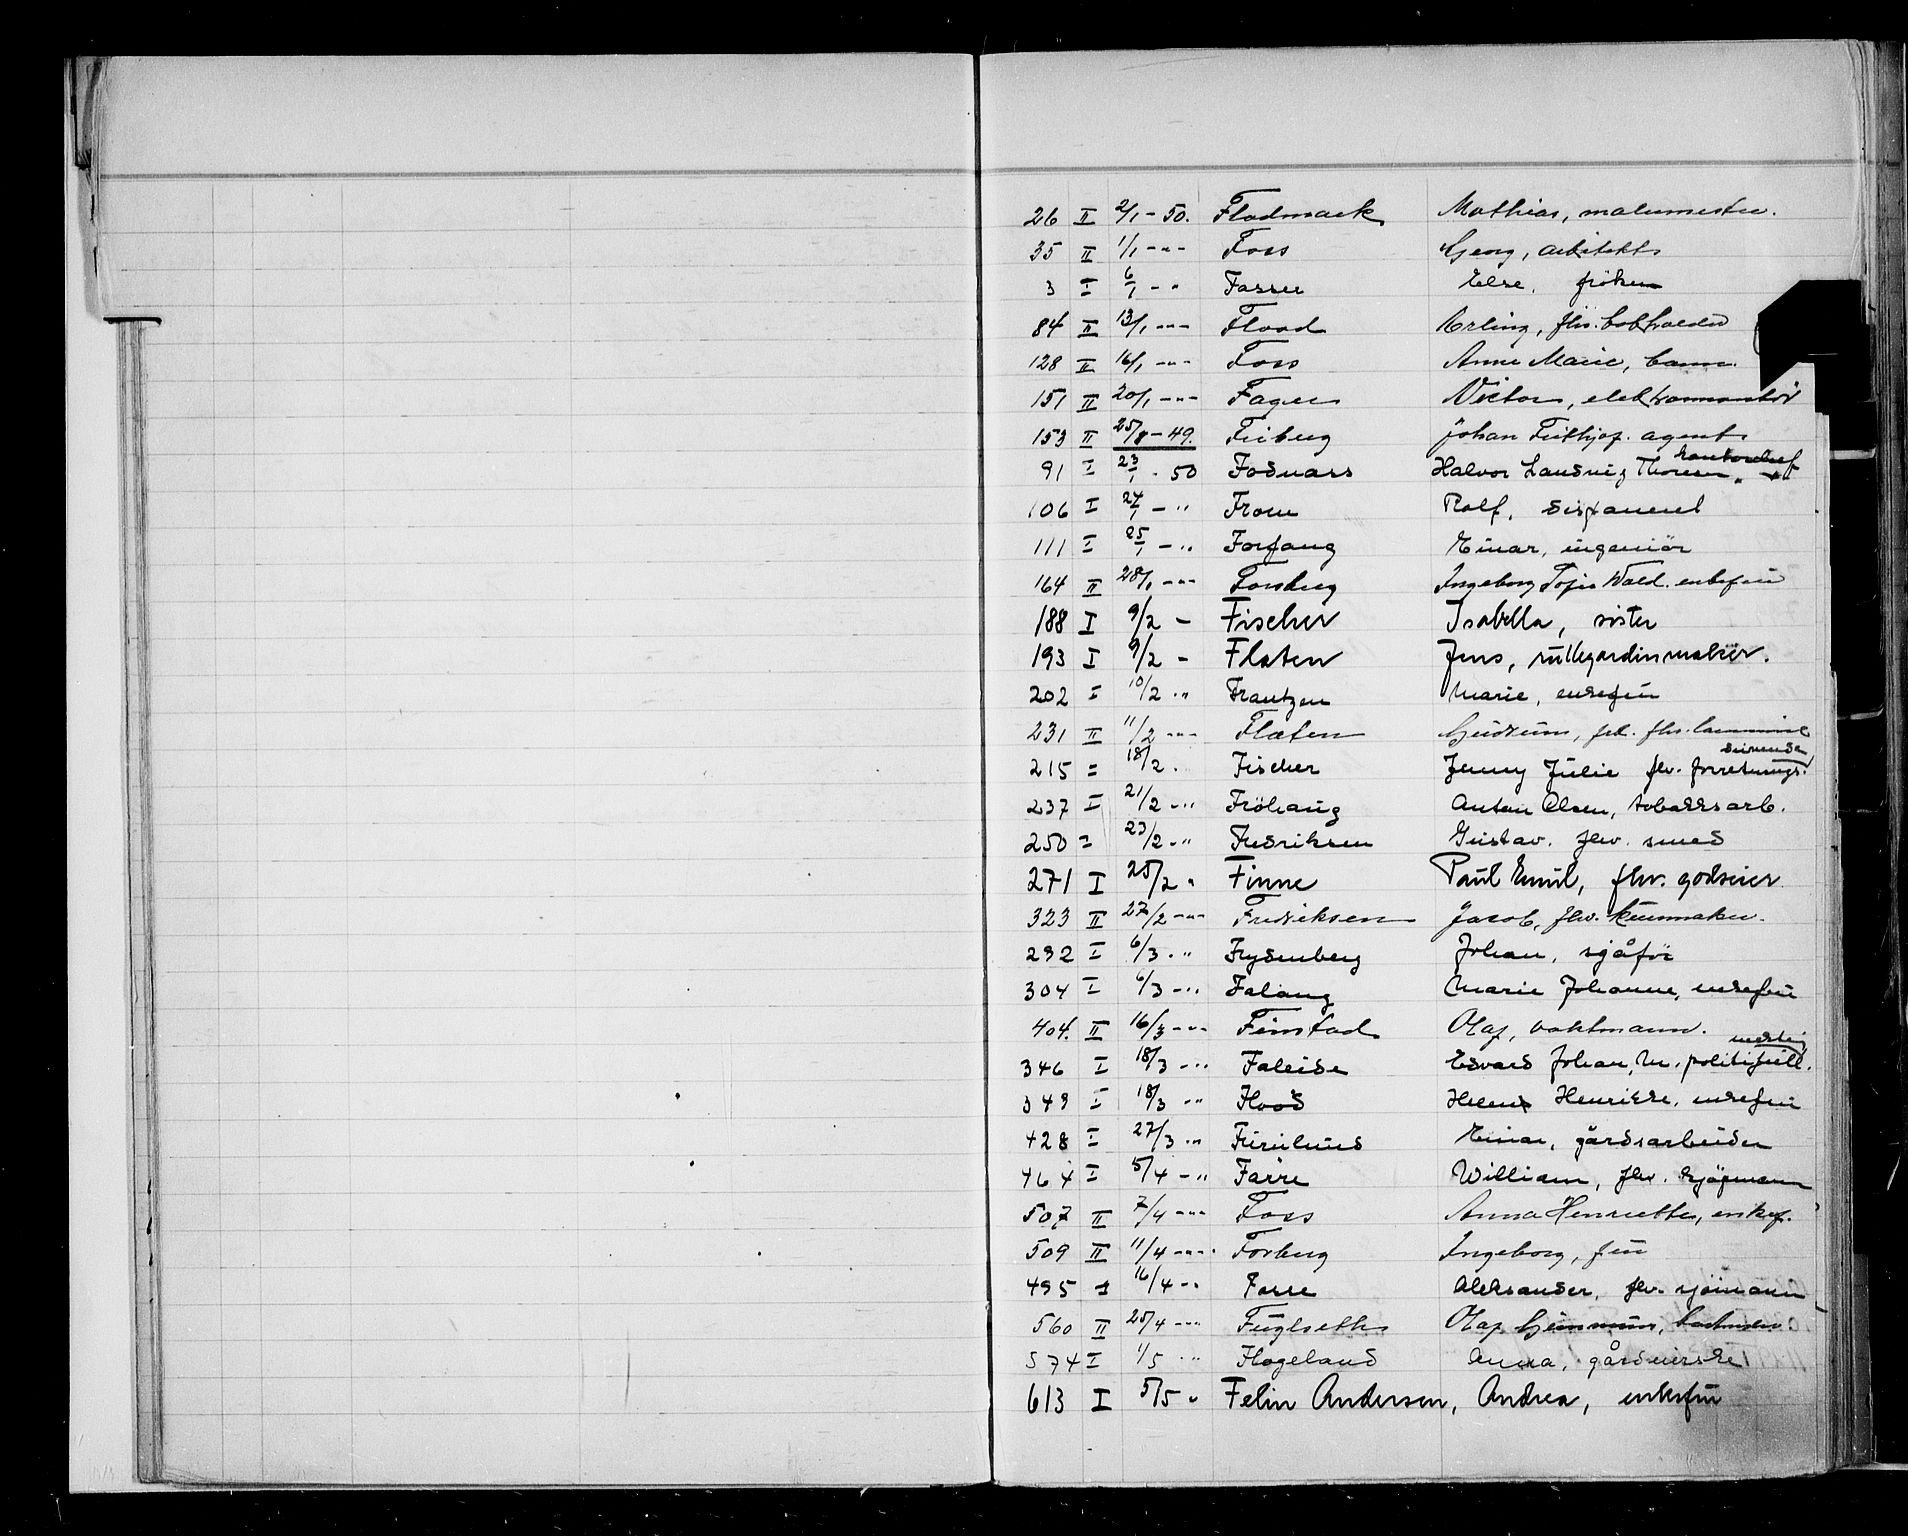 26 II 2/1 - 50. Flodmark Mathias, malermester.
35 II 1/1 - " - Foss Georg, arkitekt
3 I 6/1 - " Fasser Else, fröken
84 II 13/1 - " - Flood Erling, fhv. bokholder
128 II 16/1 - " - Foss Anne Marie, barn.
151 II 20/1 - " - Fager Victor, elektromontör
153 II 25/8 - 49. Friberg Johan Frithjof. agent.
kontorchef
91 I 23/1 - 50 Fosnæss Halvor Landvig Thoresen
106 I 24/1 - " From Rolf, disponent
111 I 25/1 - " Forfang Einar, ingeniör
164 II 28/1 - " - Forsberg Ingeborg Wold. enkefru
188 I 9/2 - Fischer Isabella, sister
193 I 9/2 - Flaten Jens, rullegardinmaker.
202 I 10/2 - " Frantzen Marie, enkefru
231 II 11/2 - " - Flaten Gudrun, frk. fhv.
drivende
215 = 18/2 - Fischer Jenny Julie fhv. forretnings.
237 I 21/2 - " Fröhaug Anton Olsen, tobakksarb.
250 = 23/2 - " Fredriksen Gustav. fhv. smed
271 I 25/2 " Finne Paul Emil, fhv. godseier
323 II 27/2 - " - Fredriksen Jacob, fhv. buntmaker.
292 I 6/3 - " Frydenberg Johan, sjåför
304 I 6/3 - " Falang Marie Johanne, enkefru
404. II 16/3 - " - Finstad Olaf, vaktmann.
mektig
346 I 18/3 - " Faleide Edvard Johan, M. politifull.
349 I 18/3 - " Flood Helene Henrikke, enkefru
428 I 27/3 - " Furulund Einar, gårdsarbeider
464 I 5/4 - " Farre William, fhv. kjöpmann
507 II 7/4 - " - Foss Anna Henriette, enkef.
509 II 11/4 - " - Forberg Ingeborg, fru
495 I 16/4 - " Fosse Aleksander, fhv. sjömann
560 II 25/4 - " - Fuglseth Olaf Gunnar,
574 I 1/5 - " Flogeland Anna, gårdeierske
613 I 5/5 " Felin Andersen, Andrea, enkefru